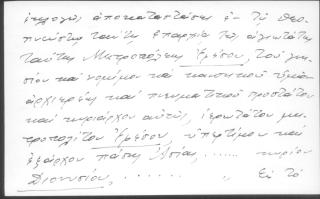 ἐκλογῆς ἀποκαταστάσης ἐν τῇ θεο-
πνεύστῳ ταύτῃ ἐπαρχίᾳ τῆς ἁγιωτάτης
ταύτης Μητροπόλεως Ἐφέσου, τοῦ γνη-
σίου καὶ νομίμου καὶ κανονικοῦ ἡμῶν
ἀρχιερέως καὶ πνευματικοῦ προστάτου
καὶ κυριάρχου αὐτῆς, ἱερωτάτου μη-
τροπολίτου Ἐφέσου, ὑπερτίμου καὶ
ἐξάρχου πάσης Ἀσίας, ...... κυρίου
Διονυσίου, ...... " Ἐν τῷ